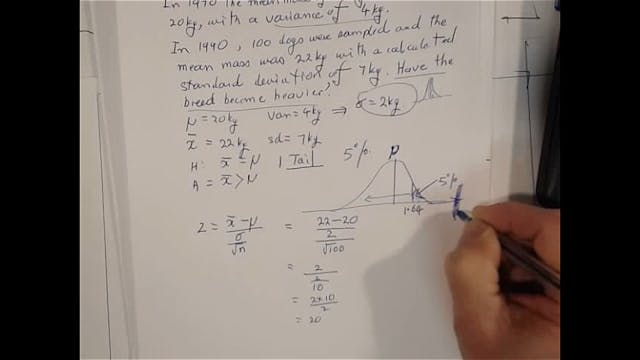 In 1970 the mean mass of
20kg, with a variance of 4kg.
In 1990, 100 dogs were sampled and the
mean mass was 22kg with a calculated
standard deviation of 7kg. Have the
breed become heavier?
μ = 20kg var = 4kg ⇒ σ = 2kg
x̄ = 22kg sd = 7kg
H: x̄ = μ 1 Tail 5%
A = x̄ > μ
μ
5%
1.64
Z = (x̄ - μ) / (σ/√n) = (22-20) / (2/√100)
= 2 / (2/10)
= 2×10 / 2
= 20